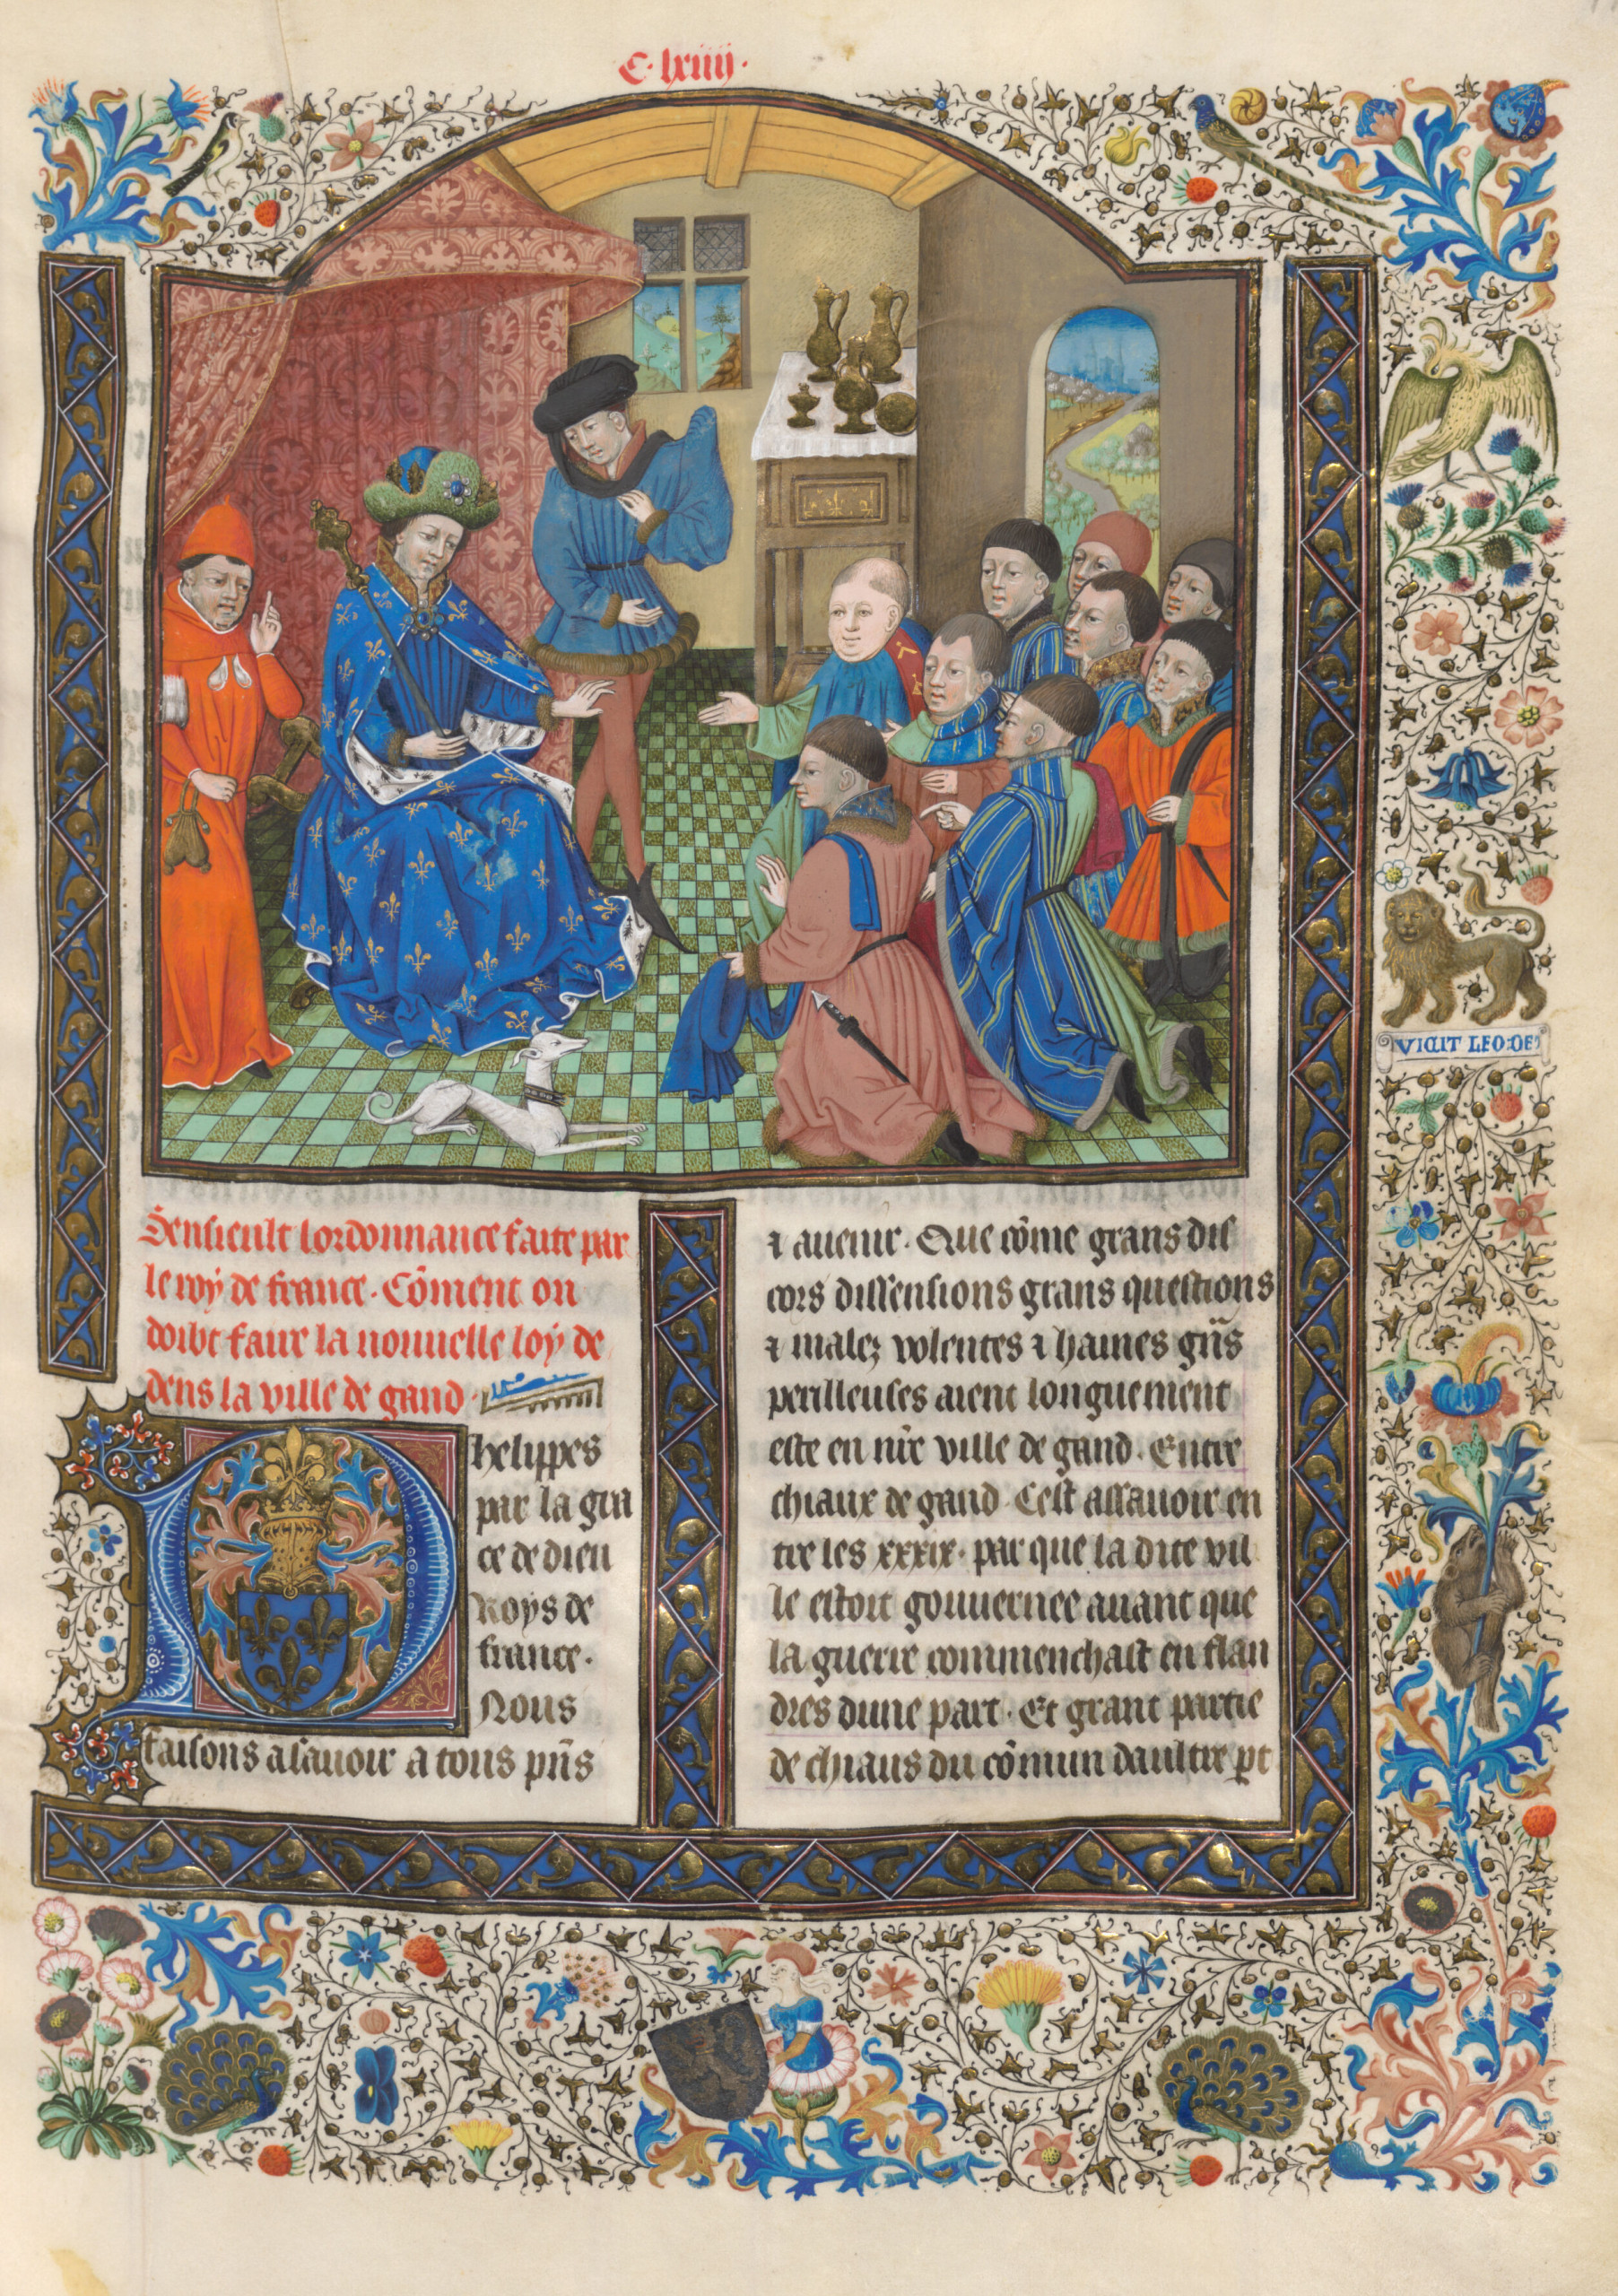 C·lxiiij·
Sensieult lordonnance faite par
le roy de france· Cōment on
doibt faire la nouuelle loy de
dens la ville de gand·
Phelippes
par la gra
ce de dieu
Roys de
france·
Nous
faisons asauoir a tous pñs
⁊ auenir· Que cōme grans dis
cors dissensions grans questions
⁊ malez volentes ⁊ haines gñs
perilleuses aient longuement
este en nr̄e ville de gand· Entre
chiaux de gand· Cest assauoir en
tre les xxxix· par que la dite vil
le estoit gouuernee auant que
la guerre commenchast en flan
dres dune part· Et grant partie
de chiaus du cōmun daultre pt
VICIT LEO:DE